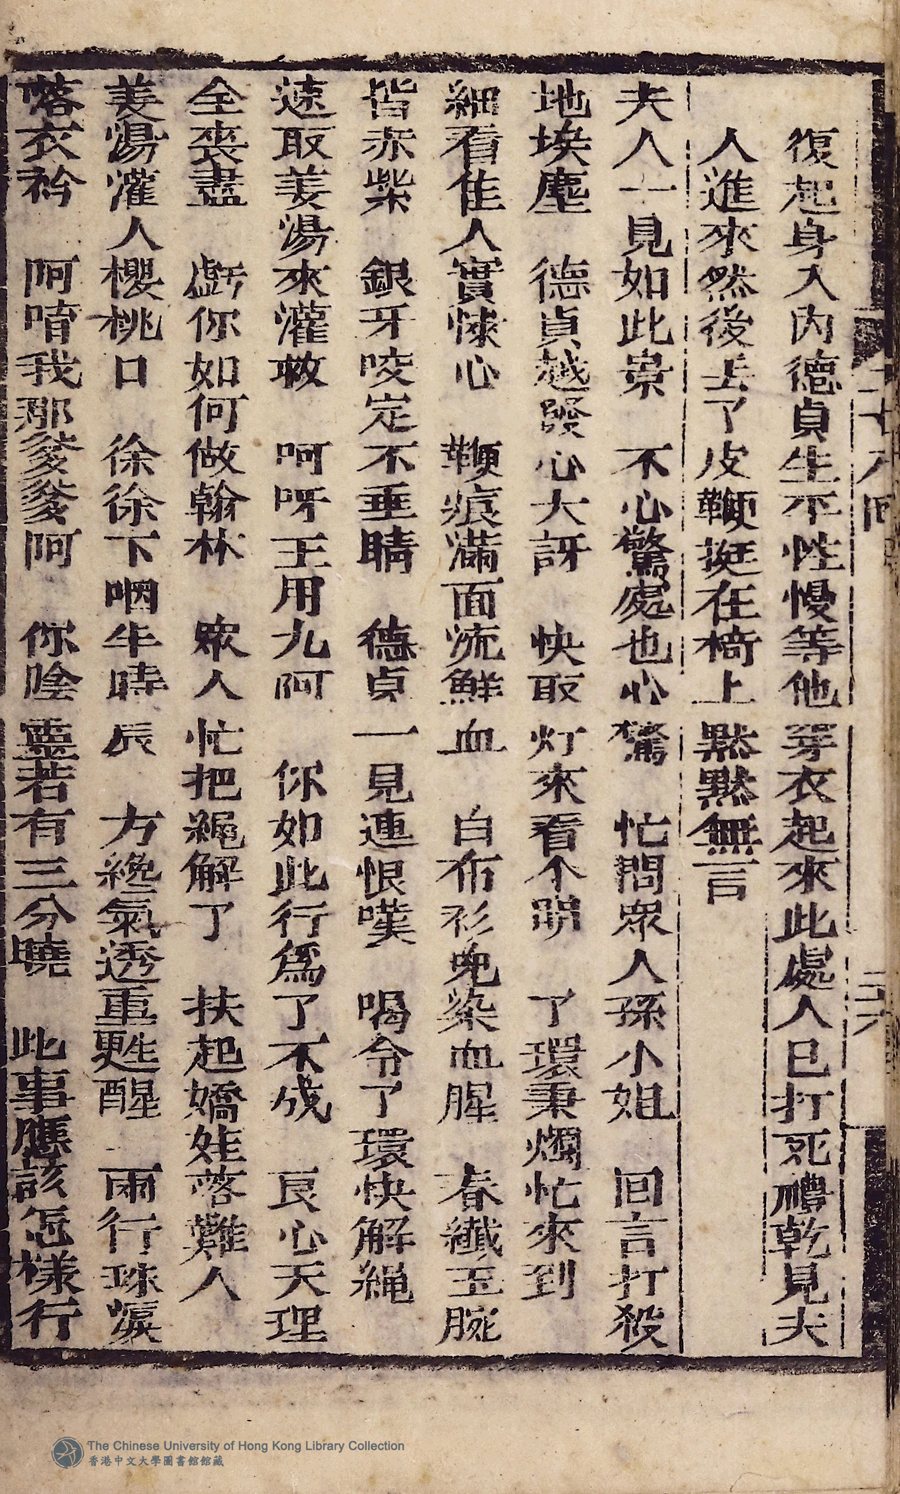 復起身入內德貞生不性慢等他穿衣起來此處人已打死禮乾見夫
人進來然後丢了皮鞭挺在椅上默默無言
夫人一見如此景　不心驚處也心驚　忙問衆人孫小姐　回言打殺
地埃塵　德貞越發心大訝　快取灯來看不明　了環秉燭忙來到
細看佳人實悚心　鞭痕滿面流鮮血　白布衫兒染血腥　春纖玉腕
皆赤紫　銀牙咬定不垂睛　德貞一見連恨嘆　喝令了環快解繩
速取姜湯來灌救　呵呀王用九阿　你如此行為了不成　良心天理
全喪盡　虧你如何做翰林　衆人忙把繩解了　扶起嬌娃落難人
姜湯灌人櫻桃口　徐徐下咽半時辰　方纔氣透重甦醒　兩行珠淚
落衣衿　阿唷我那爹爹阿　你陰靈若有三分曉　此事應該怎樣行
二十八回
二六
The Chinese University of Hong Kong Library Collection
香港中文大學圖書館館藏